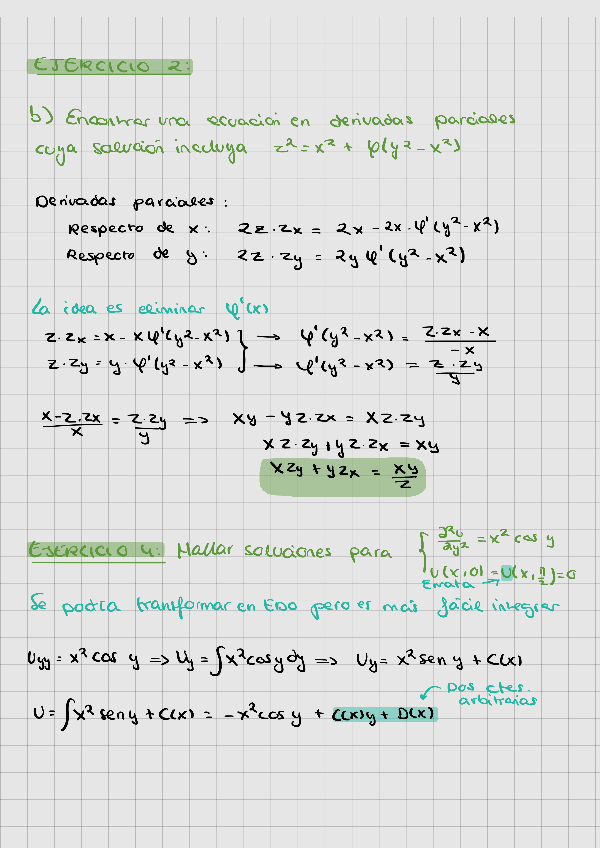 EJERCICIO 2:
b) Encontrar una ecuación en derivadas parciales
cuya solución incluya z² = x² + φ(y² - x²)
Derivadas parciales:
Respecto de x: 2z·zx = 2x - 2x·φ'(y² - x²)
Respecto de y: 2z·zy = 2y φ'(y² - x²)
La idea es eliminar φ'(x)
z·zx = x - xφ'(y² - x²) } → φ'(y² - x²) = (z·zx - x)/(-x)
z·zy = y·φ'(y² - x²) } → φ'(y² - x²) = (z·zy)/y
(x - z·zx)/x = (z·zy)/y ⇒ xy - yz·zx = xz·zy
xz·zy + yz·zx = xy
xzy + yzx = xy/z
EJERCICIO 4: Hallar soluciones para { ∂²u/∂y² = x² cos y
u(x,0) = u(x,π/2) = 0
Errata →
Se podría transformar en EDO pero es más fácil integrar
Uyy = x² cos y ⇒ Uy = ∫x² cos y dy ⇒ Uy = x² sen y + C(x)
Dos ctes.
arbitrarias
U = ∫x² sen y + C(x) = -x² cos y + C(x)y + D(x)